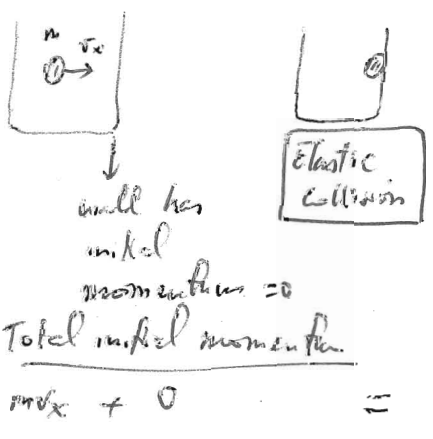 m
vₓ
Elastic
collision
wall has
initial
momentum =0
Total initial momentum
mvₓ + 0 =